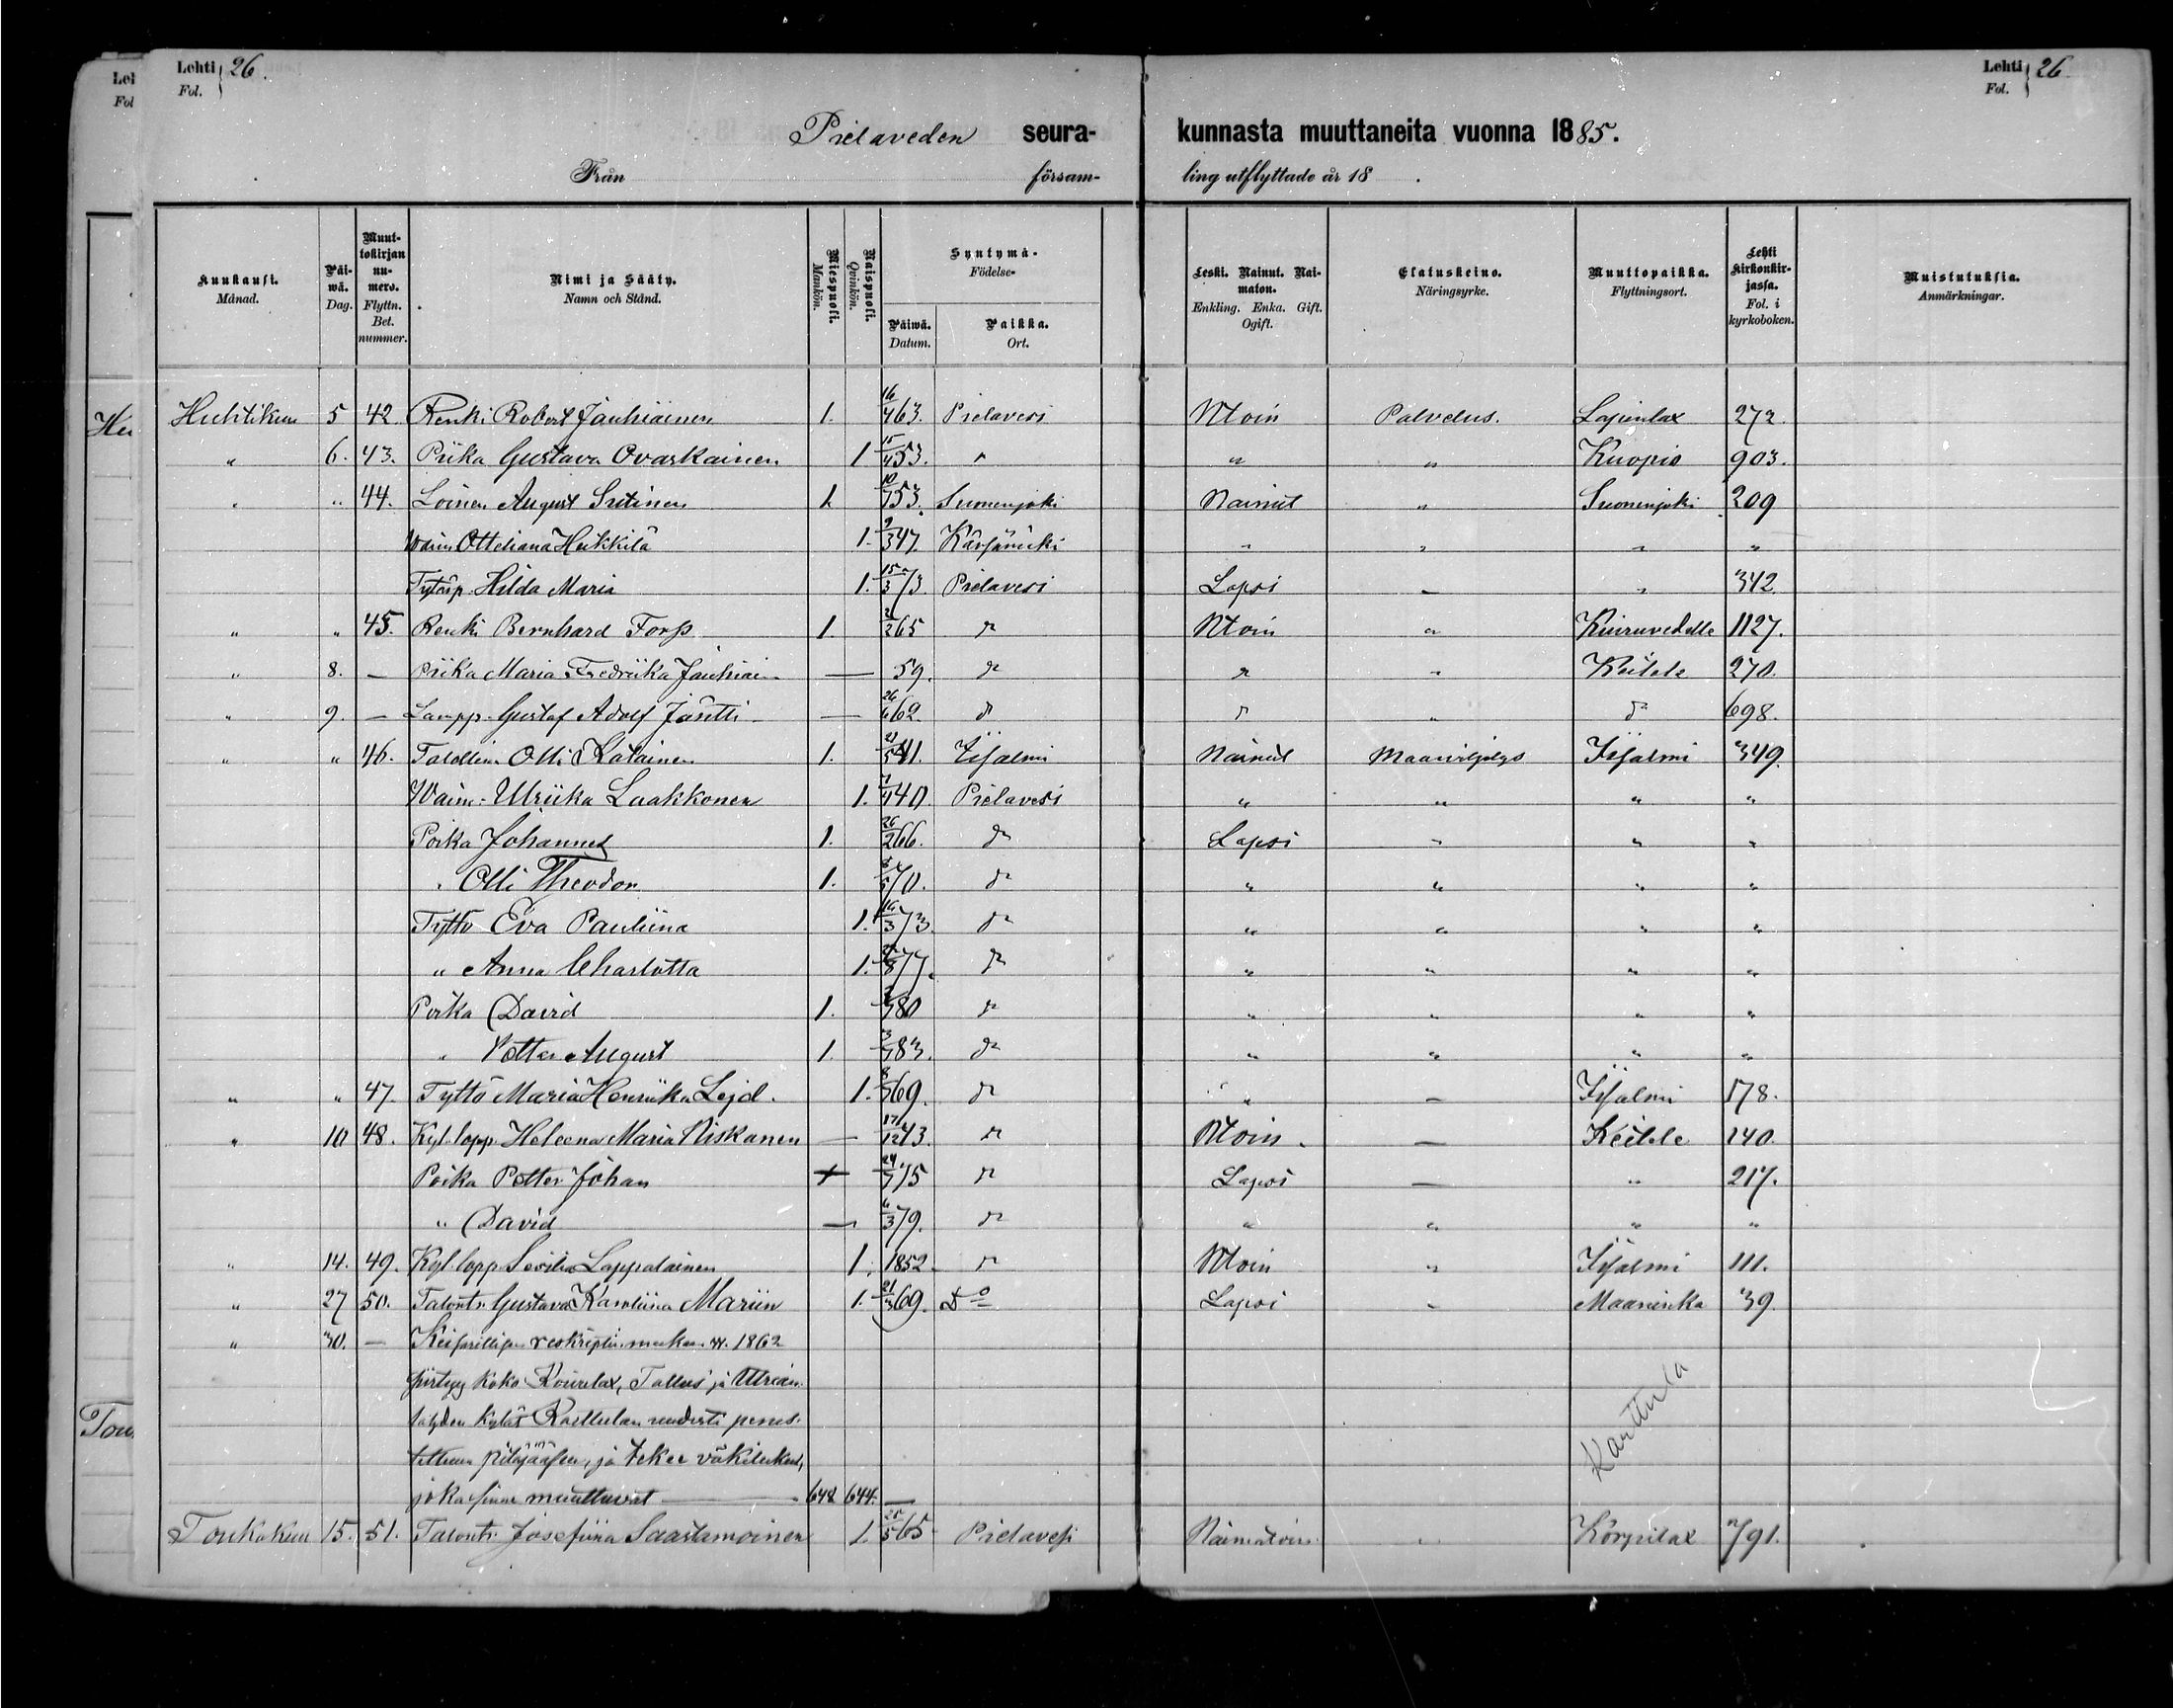 Lehti Fol. } 26.
Lehti Fol. } 26.
Pielaveden seura- kunnasta muuttaneita vuonna 1885.
Från församling utflyttade år 18 .
Kuukausi. Månad. Päiwä. Dag. Muuttokirjan numero. Flyttn. Bet. nummer. Nimi ja Sääty. Namn och Stånd. Miespuoli. Mankön. Naispuoli. Qvinkön. Syntymä- Födelse- Päiwä. Datum. Paikka. Ort. Leski. Nainut. Naimaton. Enkling. Enka. Gift. Ogift. Elatuskeino. Näringsyrke. Muuttopaikka. Flyttningsort. Lehti kirkonkirjassa. Fol. i kyrkoboken. Muistutuksia. Anmärkningar.
Huhtikuu 5 42. Renki Robert Jauhiainen 1. 16/4 63. Pielavesi Ntoin Palvelus. 272.
" 6. 43. Piika Gustava Ovaskainen 1 15/4 53. " " " Kuopio 903.
" " 44. Loinen August Sutinen 1. 10/7 53. Suonenjoki Nainut " Suonenjoki 209
Waim Otteliana Heikkilä 1. 9/3 47. " " " "
Tytärp. Hilda Maria 1. 15/3 73. Pielavesi Lapsi - " 342.
" " 45. Renki Bernhard Forss 1. 65 do Ntoin " Kiuruvedelle 1127.
" 8. — Piika Maria Fredriika Jauhiain — 59. do " " Keitele 270.
" 9. — Lampp. Gustaf Adolf Jäntti — 26/6 62. do " do 698.
" " 46. Talollin Olli Katainen 1. 21/5 41. Iisalmi Nainut Maanviljelys Iisalmi 349.
Waim. Ulriika Laakkonen 1. 40. Pielavesi " " " "
Poika Johannes 1. 26/2 66. do Lapsi " " "
" Olli Theodor 1. 70. do " " " "
Tyttö Eva Pauliina 1. 16/3 73. do " " " "
" Anna Charlotta 1. 77. do " " " "
Poika David 1. 80 do " " " "
" Petter August 1. 83. do " " " "
" " 47. Tyttö Maria Henriika Lejd. 1. 69. do " — Iisalmi 178.
" 10 48. Kyl. lopp. Heleena Maria Niskanen — 17/12 43. do Ntoin. — Keitele 140.
Poika Petter Johan 24/7 75 do Lapsi — " 217.
" David — 6/3 79. do " " " "
" 14. 49. Kyl. lopp. Lappalainen 1. 1852. do Ntoin " Iisalmi 111.
" 27 50. Talontr. Gustava Karoliina Mariin 1. 21/3 69. Do Lapsi " Maaninka 39.
" 30. — Keisarillisen reskriptin mukan v. 1862
siirtyy koko Koivulax, Tallus ja
lahden kylät Karttulan uudesti perus-
tettuun pitäjääsen, ja tekee väkiluku,
joka sinne muuttuvat — 648 644. — Karttula
Toukokuu 15. 51. Talontr. Josefiina Saastamoinen 1. 25/5 65 Pielavesi Naimatoin " Korpilax 791.
Hu
Tou